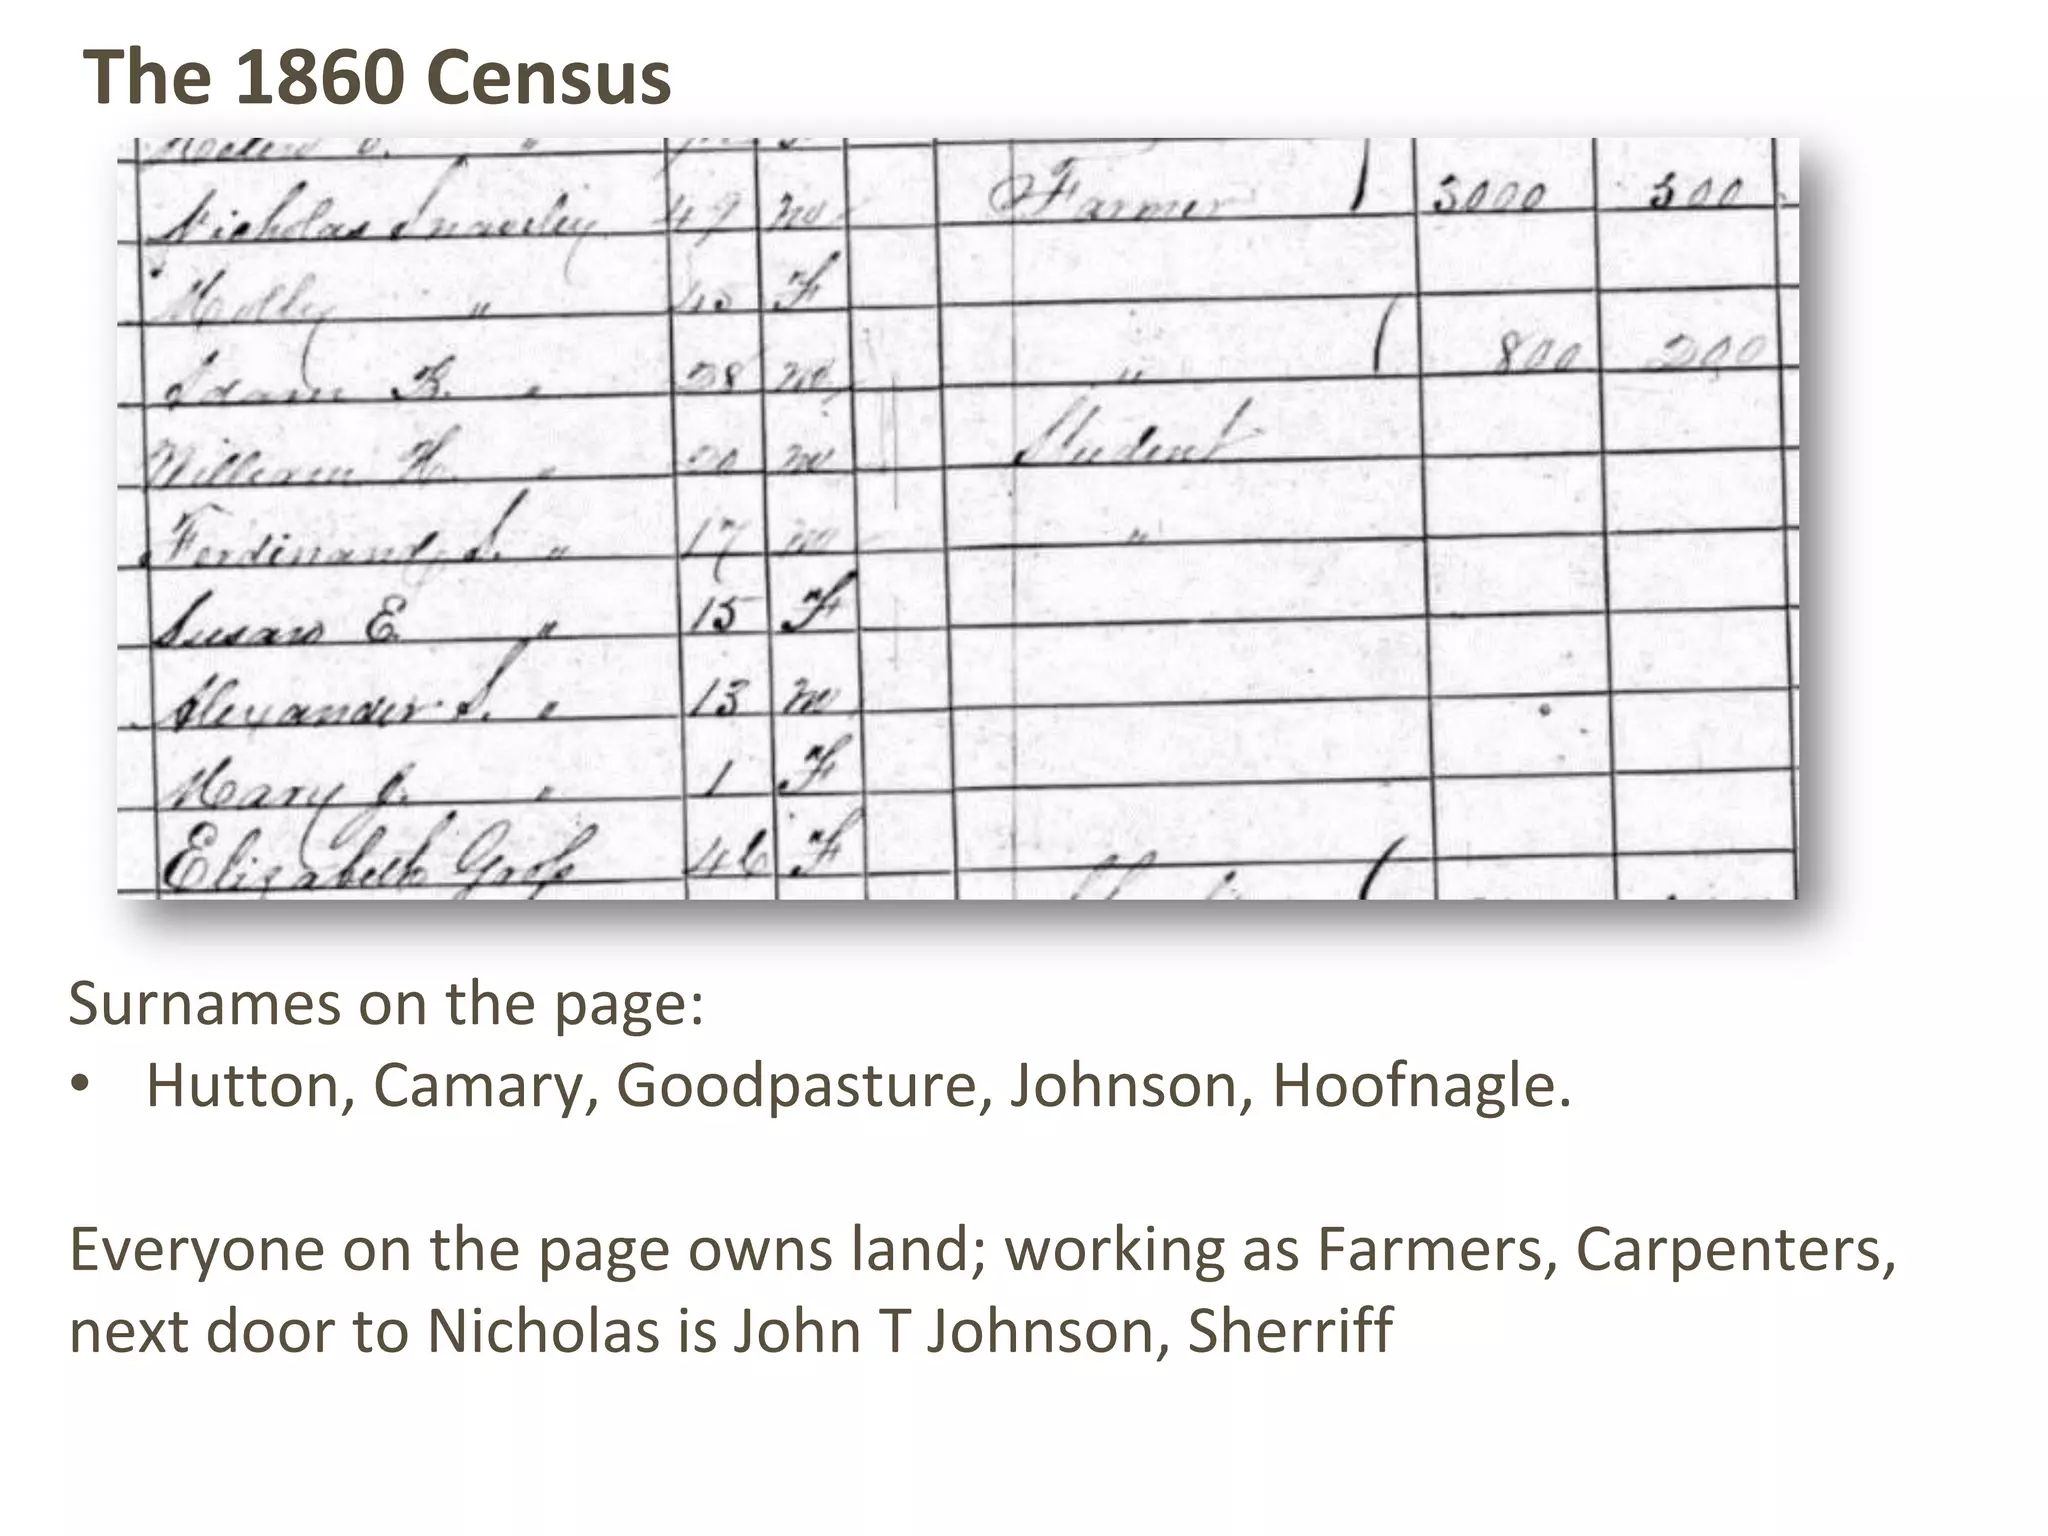 The 1860 Census
Nicholas Snavely 49 m Farmer 3000 500
Molly " 45 F
Adam B. " 28 m " 800 200
William H. " 20 m Student
Ferdinand S. " 17 m "
Susan E. " 15 F
Alexander S. " 13 m
Mary J. " 1 F
Elizabeth Gross 46 F
Surnames on the page:
• Hutton, Camary, Goodpasture, Johnson, Hoofnagle.
Everyone on the page owns land; working as Farmers, Carpenters,
next door to Nicholas is John T Johnson, Sherriff